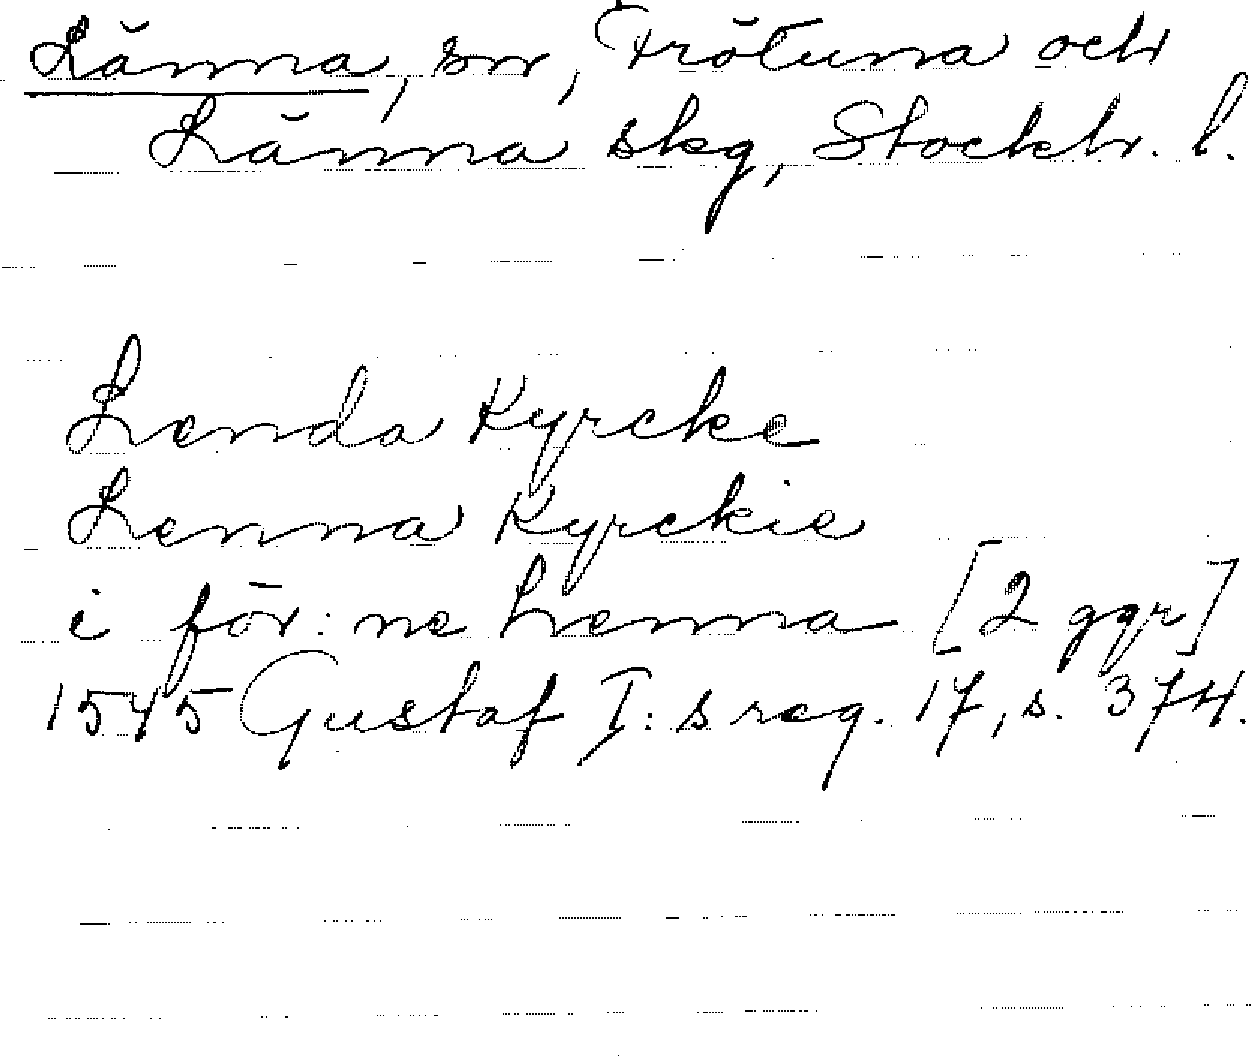 Länna, sn, Frötuna och
Länna skg, Stockh. l.
Lenda Kyrcke
Lenna Kyrckie
i för:ne Lenna [2 ggr]
1545 Gustaf I:s reg. 17, s. 374.